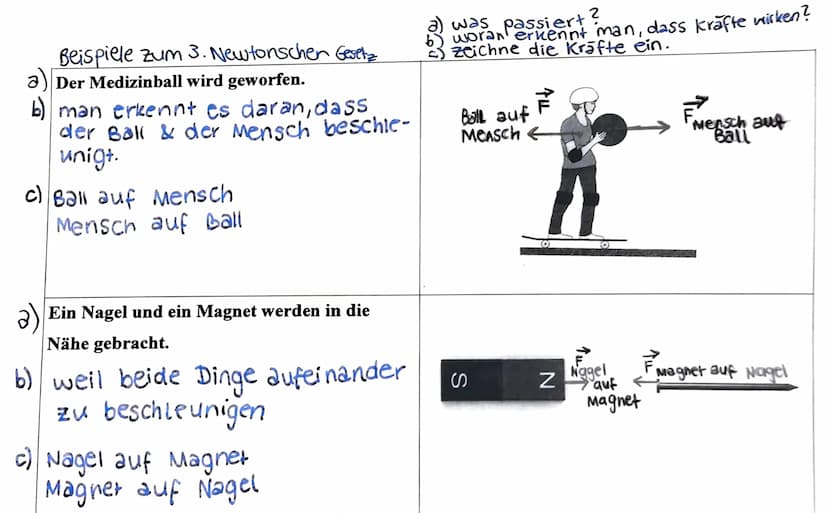 a) was passiert?
b) woran erkennt man, dass Kräfte wirken?
c) zeichne die Kräfte ein.
Beispiele zum 3. Newtonschen Gesetz
a) Der Medizinball wird geworfen.
b) man erkennt es daran, dass
der Ball & der Mensch beschle-
unigt.
c) Ball auf Mensch
Mensch auf Ball
F Ball auf
Mensch
F Mensch auf
Ball
a) Ein Nagel und ein Magnet werden in die
Nähe gebracht.
b) weil beide Dinge aufeinander
zu beschleunigen
c) Nagel auf Magnet
Magnet auf Nagel
S N
F
Nagel
auf
Magnet
F Magnet auf Nagel